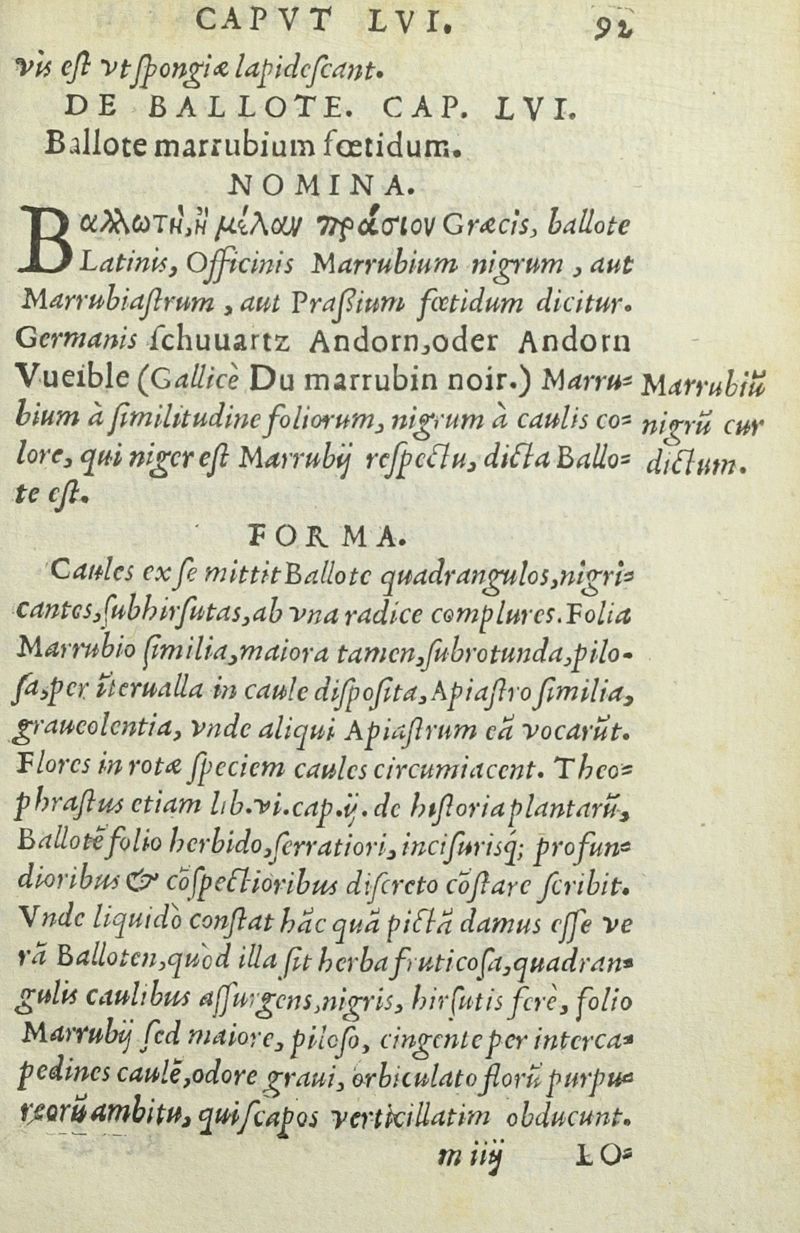 CAPVT LVI. 92
vis est vt spongiæ lapidescant.
DE BALLOTE. CAP. LVI.
Ballote marrubium fœtidum.
NOMINA.
Βαλλωτὴ, ἢ μέλαν πράσιον Græcis, ballote
Latinis, Officinis Marrubium nigrum, aut
Marrubiastrum, aut Praßium fœtidum dicitur.
Germanis schuuartz Andorn, oder Andorn
Vueible (Gallicè Du marrubin noir.) Marru=
bium à similitudine foliorum, nigrum à caulis co=
lore, qui niger est Marrubij respectu, dicta Ballo=
te est.
Marrubiū
nigrū cur
dictum.
FORMA.
Caules ex se mittit Ballote quadrangulos, nigri=
cantes, subhirsutas, ab vna radice complures. Folia
Marrubio similia, maiora tamen, subrotunda, pilo-
sa, per īterualla in caule disposita, Apiastro similia,
graueolentia, vnde aliqui Apiastrum eā vocarūt.
Flores in rotæ speciem caules circumiacent. Theo=
phrastus etiam lib. vi. cap. ij. de historia plantarū,
Ballotē folio herbido, serratiori, incisurisq́; profun=
dioribus & cōspectioribus discreto cōstare scribit.
Vnde liquidò constat hāc quā pictā damus esse ve
rā Balloten, quòd illa sit herba fruticosa, quadran=
gulis caulibus assurgens, nigris, hirsutis ferè, folio
Marrubij sed maiore, piloso, cingente per interca=
pedines caulē, odore graui, orbiculato florū purpu=
reorū ambitu, qui scapos verticillatim obducunt.
m iiij LO=